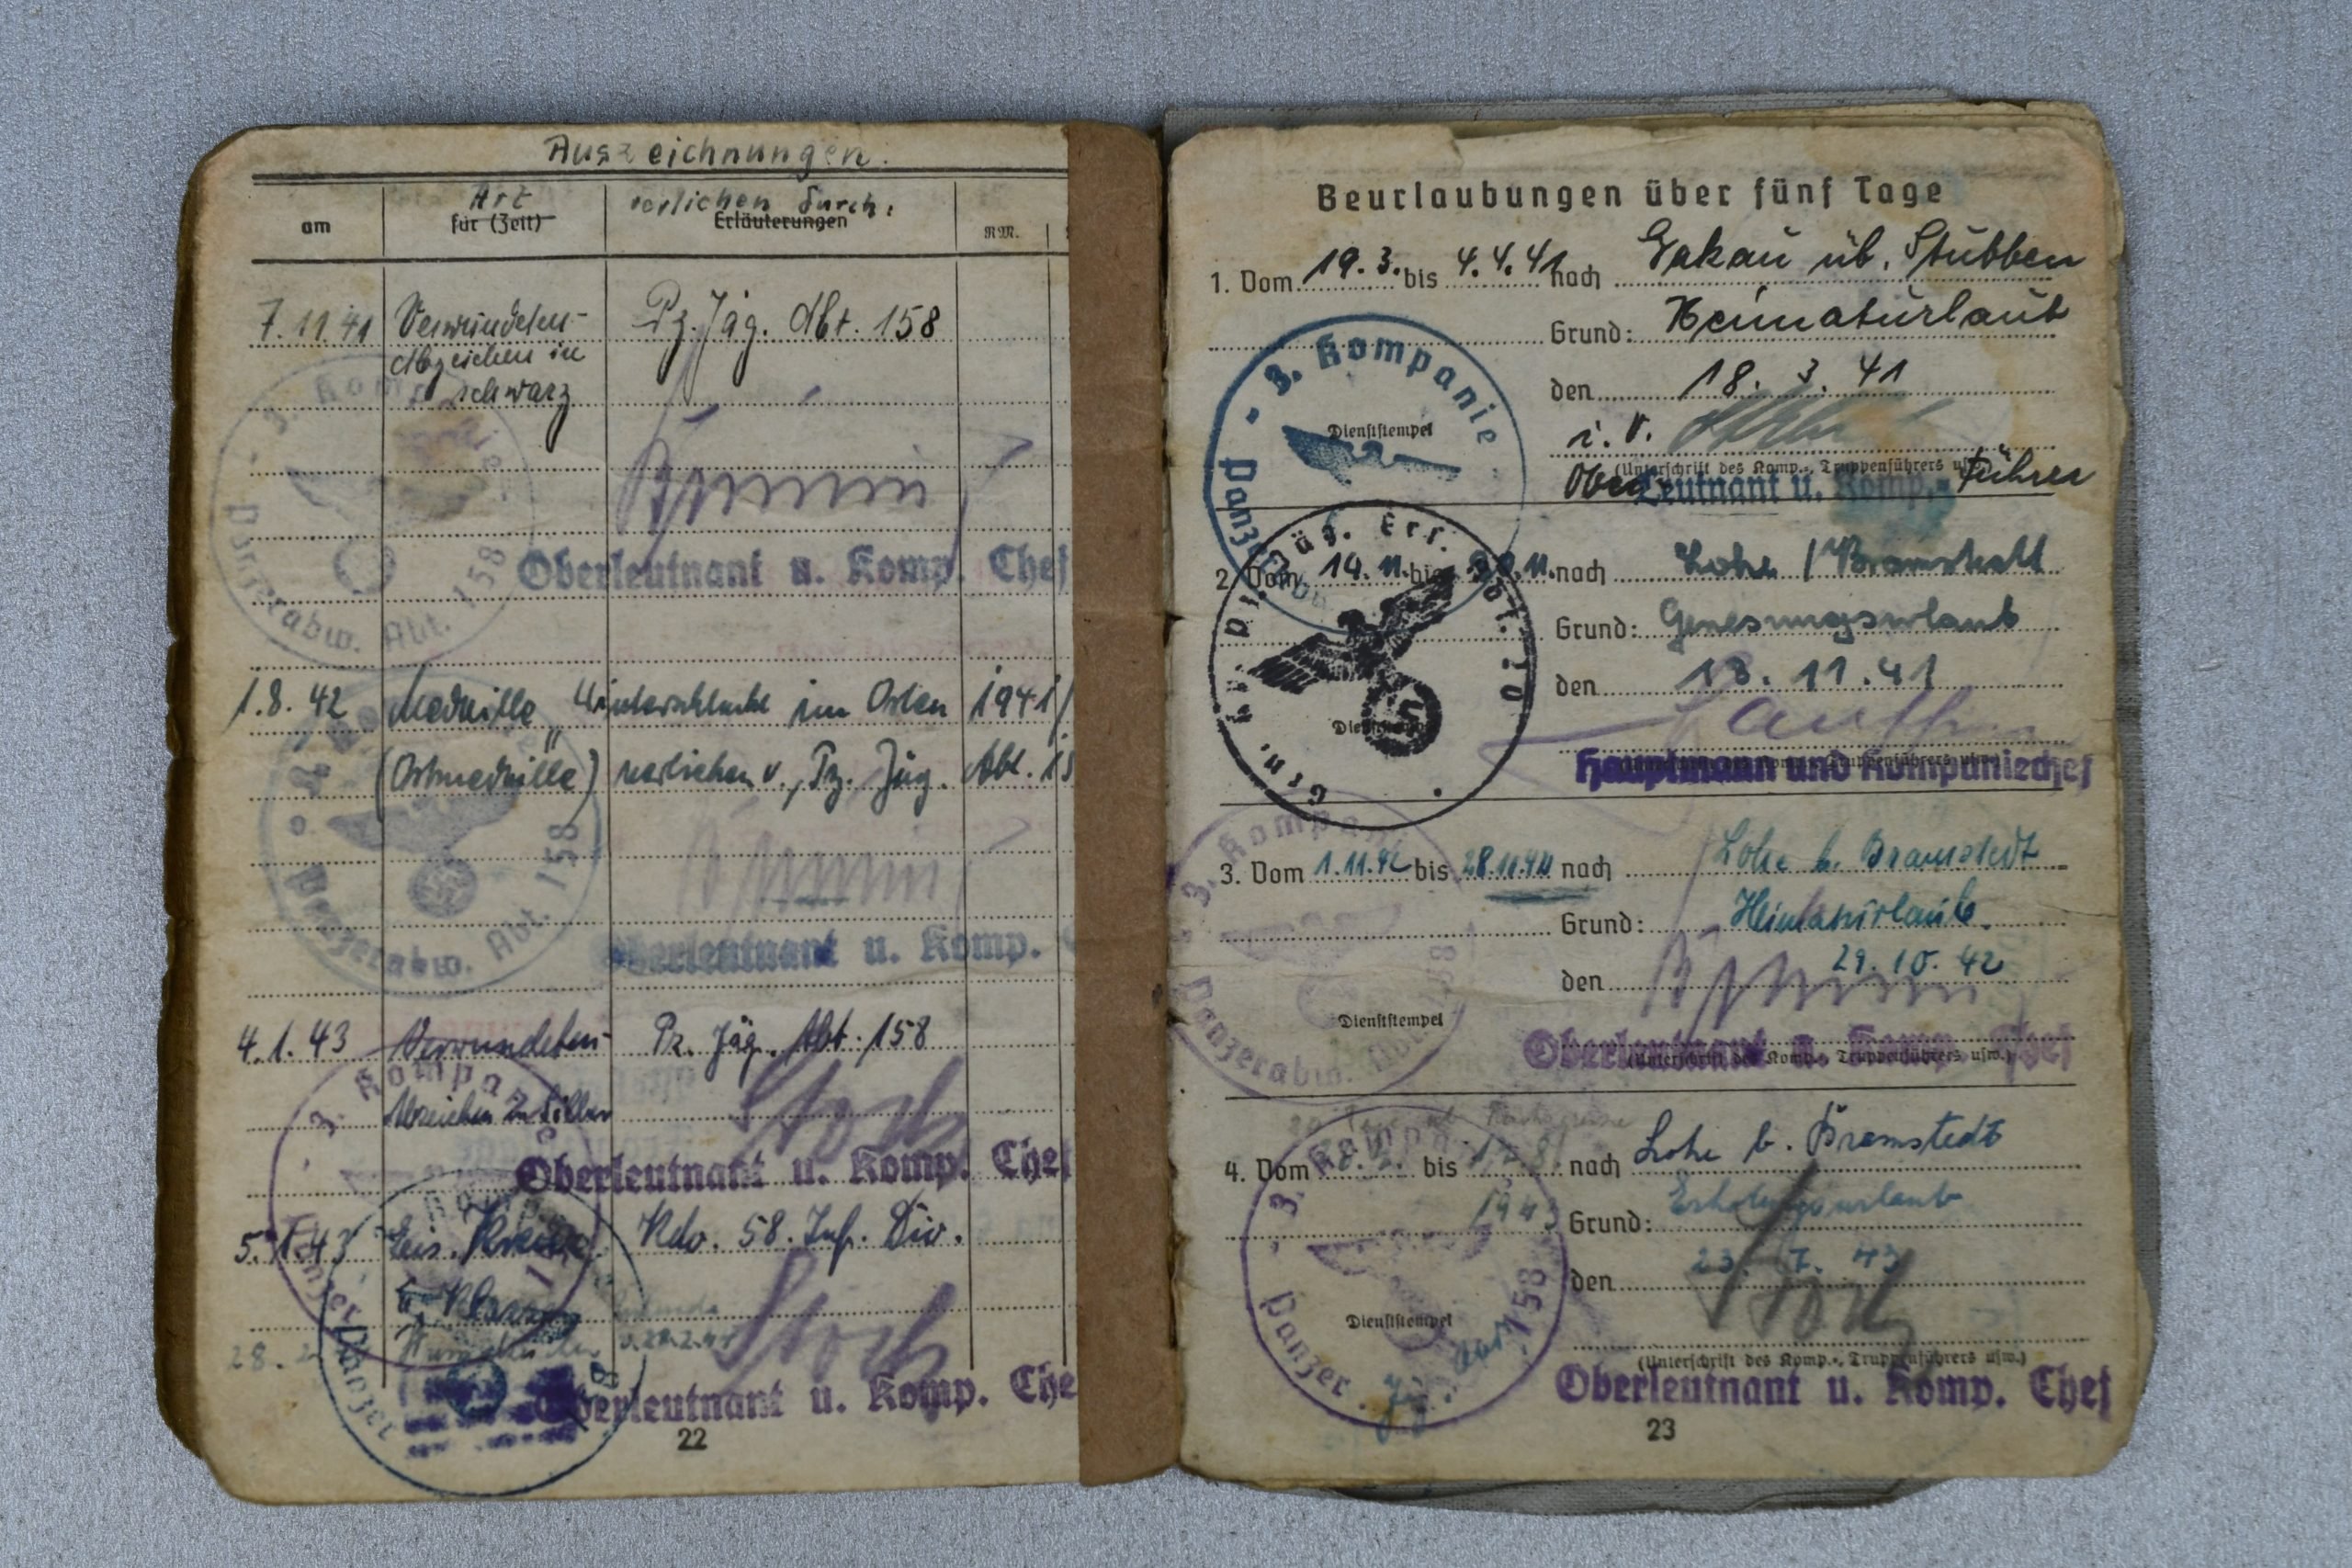 Auszeichnungen.
am
Art
für (Zeit)
verliehen durch:
Erläuterungen
RM.
7.11.41 Verwundeten- Pz. Jäg. Abt. 158
Abzeichen in
schwarz
3. Komp
Panzerabw. Abt. 158
Oberleutnant u. Komp. Chef
1.8.42 Medaille "Winterschlacht im Osten 1941/
(Ostmedaille) verliehen v., Pz. Jäg. Abt. 15
Panzerabw. Abt. 158
Oberleutnant u. Komp.
4.1.43 Verwundeten- Pz. Jäg. Abt. 158
Abzeichen in Silber
3. Kompanie
Oberleutnant u. Komp. Chef
Eis. Kreuz Kdo. 58. Inf. Div.
II. Klasse
Panzer
Oberleutnant u. Komp. Che
22
Beurlaubungen über fünf Tage
1. Vom 19.3. bis 4.4.41 nach üb. Stubben
Grund: Heimaturlaub
3. Kompanie
Dienststempel
den 18. 3. 41
i. V.
(Unterschrift des Komp.-, Truppenführers usw.)
Oberleutnant u. Komp.-Führer
2. Vom 14.11. bis 30.11. nach Lohe / Bramstedt
Grund: Genesungsurlaub
den 13.11.41
Dienststempel
Hauptmann und Kompaniechef
3. Vom 1.11.42 bis 28.11.42 nach Lohe b. Bramstedt
Grund: Heimaturlaub.
den 29.10.42
3. Kompanie
Panzerabw. Abt. 158
Dienststempel
Oberleutnant u. Komp. Chef
(Unterschrift des Komp.-, Truppenführers usw.)
4. Vom bis nach Lohe b. Bramstedt
1943
Grund: Erholungsurlaub
den 23. 7. 43
3. Kompanie
Panzer Jäg. Abt. 158
Dienststempel
(Unterschrift des Komp.-, Truppenführers usw.)
Oberleutnant u. Komp. Chef
23